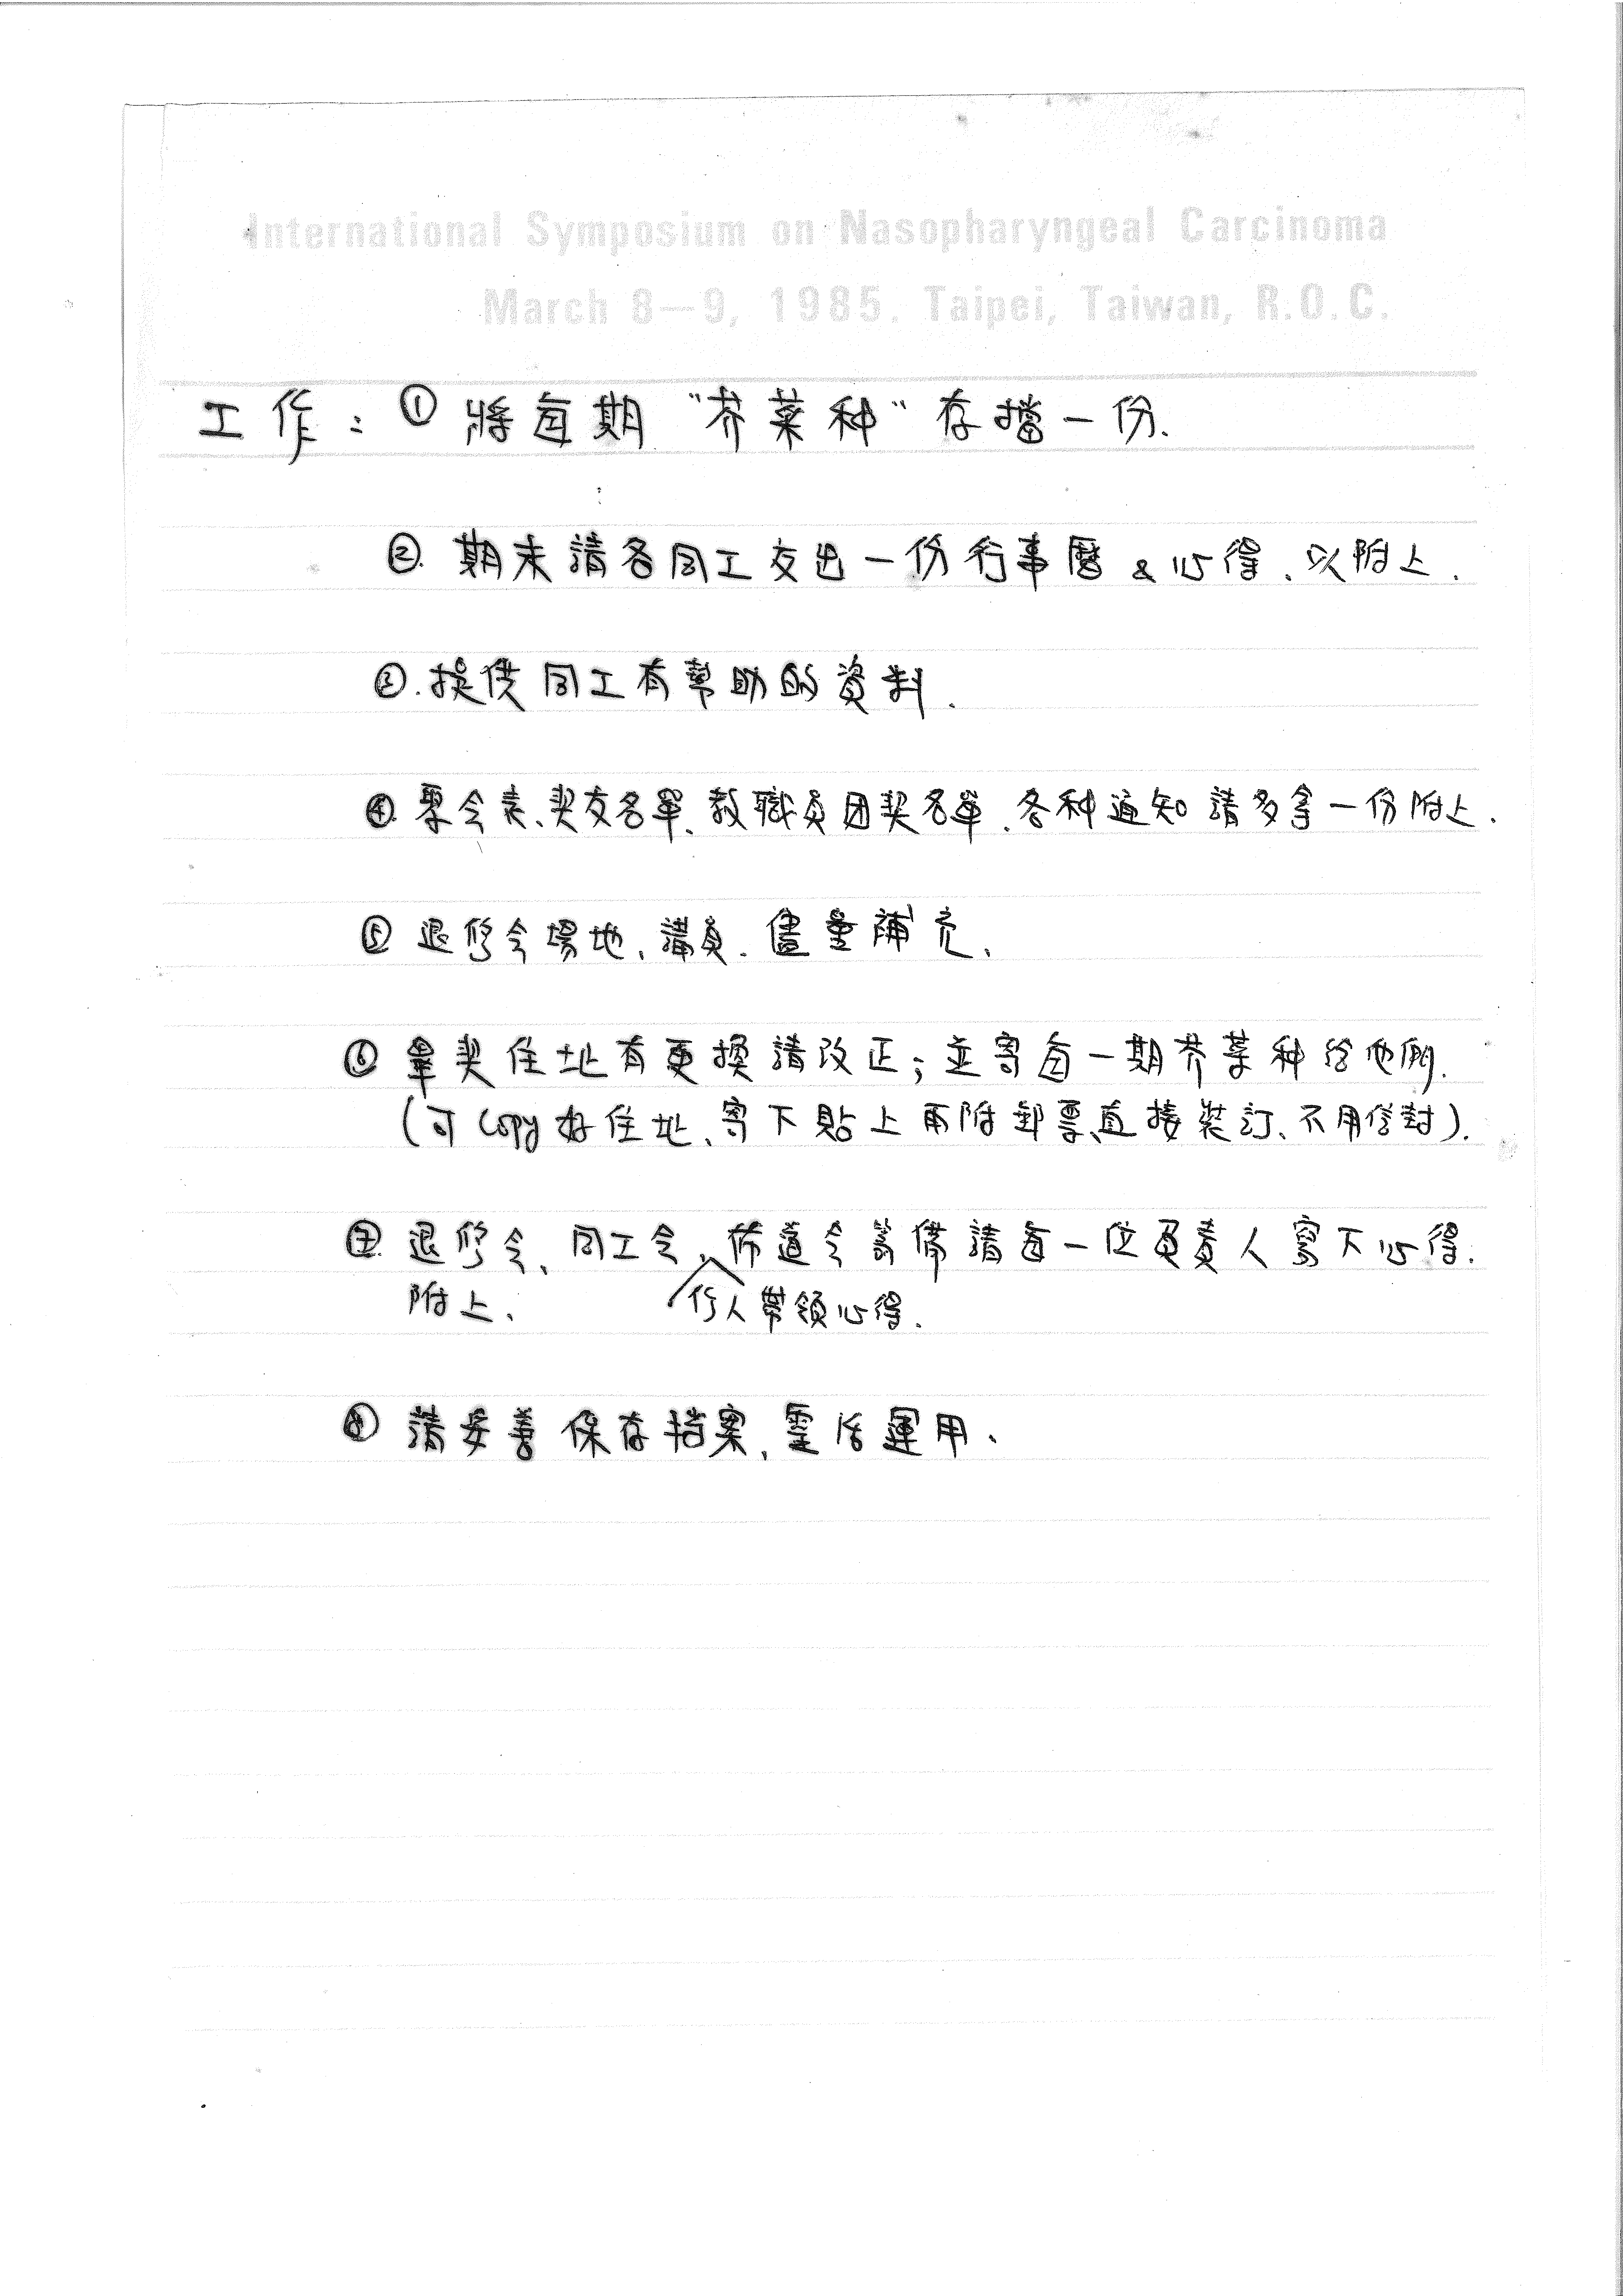 International Symposium on Nasopharyngeal Carcinoma
March 8—9, 1985. Taipei, Taiwan, R.O.C.
工作：① 將每期"芥菜种"存擋一份.
②. 期末請各同工交出一份行事曆 & 心得、以附上.
③. 提供同工有幫助的資料.
④. 聚会表、契友名單、教職員团契名單、各种通知請多拿一份附上.
⑤ 退修会場地、講員. 儘量補充、
⑥ 畢契住址有更換請改正；並寄每一期芥菜种给他們.
(可 Copy 好住址、寄下貼上再附郵票、直接裝訂、不用信封).
⑦. 退修会、同工会、佈道会筹備請每一位負責人寫下心得.
附上、 行人帶領心得.
⑧ 請妥善保存档案, 靈活運用、